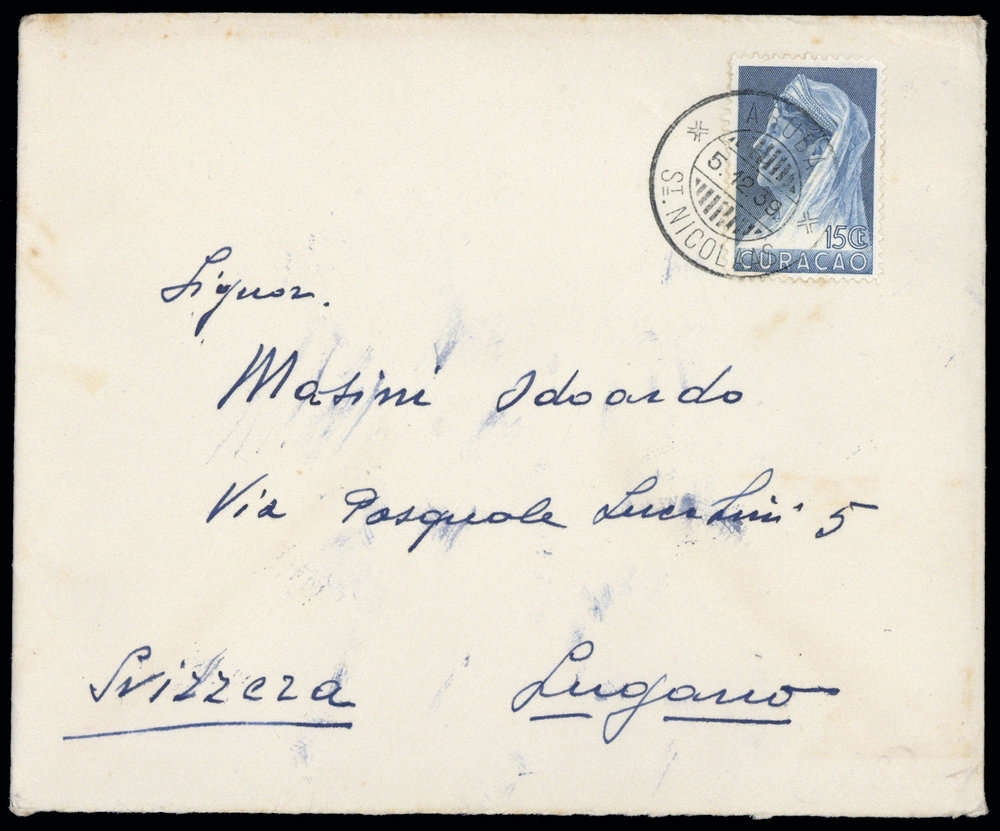 ARUBA
5.12.39.
ST. NICOLAAS
15 Ct
CURAÇAO
Signor.
Masini Edoardo
Via Pasquale Lucchini 5
Svizzera Lugano